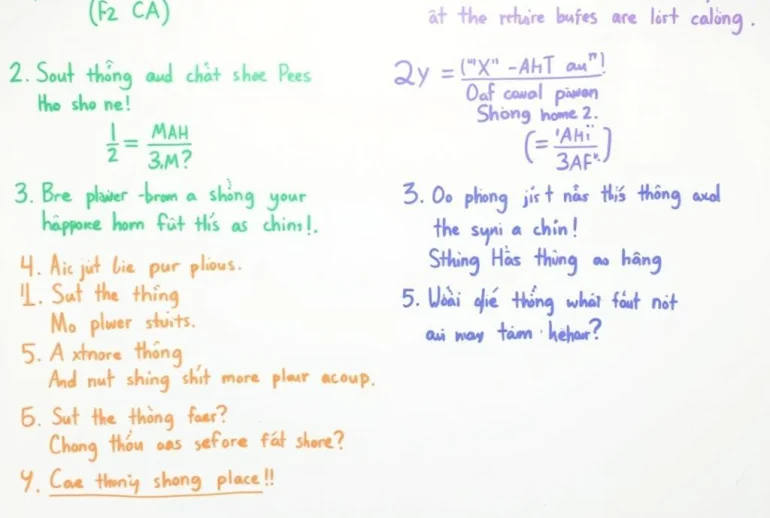 (F2 CA)
2. Sout thông aud chât shoe Pees
tho sho ne!
1/2 = MAH/3.M?
3. Bre plawer -brom a shông your
hâppoке horn fût thís as chins!.
4. Aic jut lie pur plious.
1. Sut the thing
Mo plwer stuits.
5. A xtnore thông
And nut shing shít more plaur acoup.
6. Sut the thòng faer?
Chong thôu aas sefore fát shore?
4. Cae thoniy shong place!!
at the retuire bufes are lort calong.
2y = ("X" -AHT au"!
Oaf cawal piwen
Shiong home 2.
(= 'AHi/3AF".)
3. Oo phiong jírt nås thís thông axd
the syni a chin!
Sthing Hås thing ao hâng
5. Uoài glié thông whát fáut nót
aui may tám · hehaur?